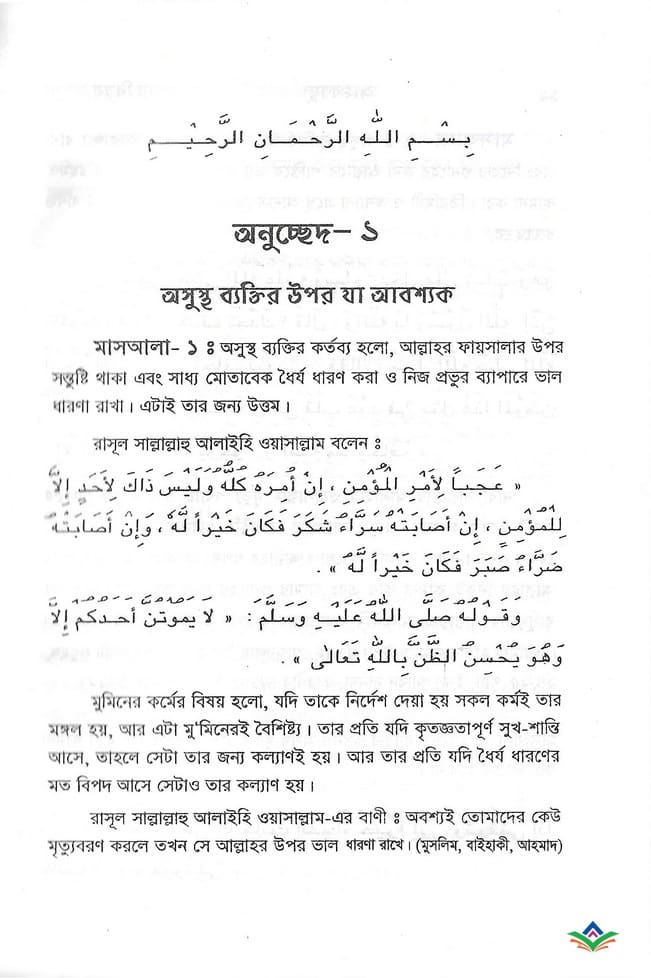 بِسْمِ اللهِ الرَّحْمَانِ الرَّحِيْمِ
অনুচ্ছেদ– ১
অসুস্থ ব্যক্তির উপর যা আবশ্যক
মাসআলা– ১ : অসুস্থ ব্যক্তির কর্তব্য হলো, আল্লাহর ফায়সালার উপর
সন্তুষ্টি থাকা এবং সাধ্য মোতাবেক ধৈর্য ধারণ করা ও নিজ প্রভুর ব্যাপারে ভাল
ধারণা রাখা। এটাই তার জন্য উত্তম।
রাসূল সাল্লাল্লাহু আলাইহি ওয়াসাল্লাম বলেন :
« عَجَباً لِأَمْرِ الْمُؤْمِنِ ، إِنْ أَمِرَهُ كُلُّهُ وَلَيْسَ ذَاكَ لِأَحَدٍ إِلَّا
لِلْمُؤْمِنِ ، إِنْ أَصَابَتْهُ سَرَّاءُ شَكَرَ فَكَانَ خَيْراً لَّهُ ، وَإِنْ أَصَابَتْهُ
ضَرَّاءُ صَبَرَ فَكَانَ خَيْراً لَّهُ » .
وَقَوْلُهُ صَلَّى اللهُ عَلَيْهِ وَسَلَّمَ : « لا يموتن أحدكم إِلَّا
وَهُوَ يُحْسِنُ الظَّنَّ بِاللهِ تَعَالَى » .
মুমিনের কর্মের বিষয় হলো, যদি তাকে নির্দেশ দেয়া হয় সকল কর্মই তার
মঙ্গল হয়, আর এটা মু'মিনেরই বৈশিষ্ট্য। তার প্রতি যদি কৃতজ্ঞতাপূর্ণ সুখ-শান্তি
আসে, তাহলে সেটা তার জন্য কল্যাণই হয়। আর তার প্রতি যদি ধৈর্য ধারণের
মত বিপদ আসে সেটাও তার কল্যাণ হয়।
রাসূল সাল্লাল্লাহু আলাইহি ওয়াসাল্লাম-এর বাণী : অবশ্যই তোমাদের কেউ
মৃত্যুবরণ করলে তখন সে আল্লাহর উপর ভাল ধারণা রাখে। (মুসলিম, বাইহাকী, আহমাদ)